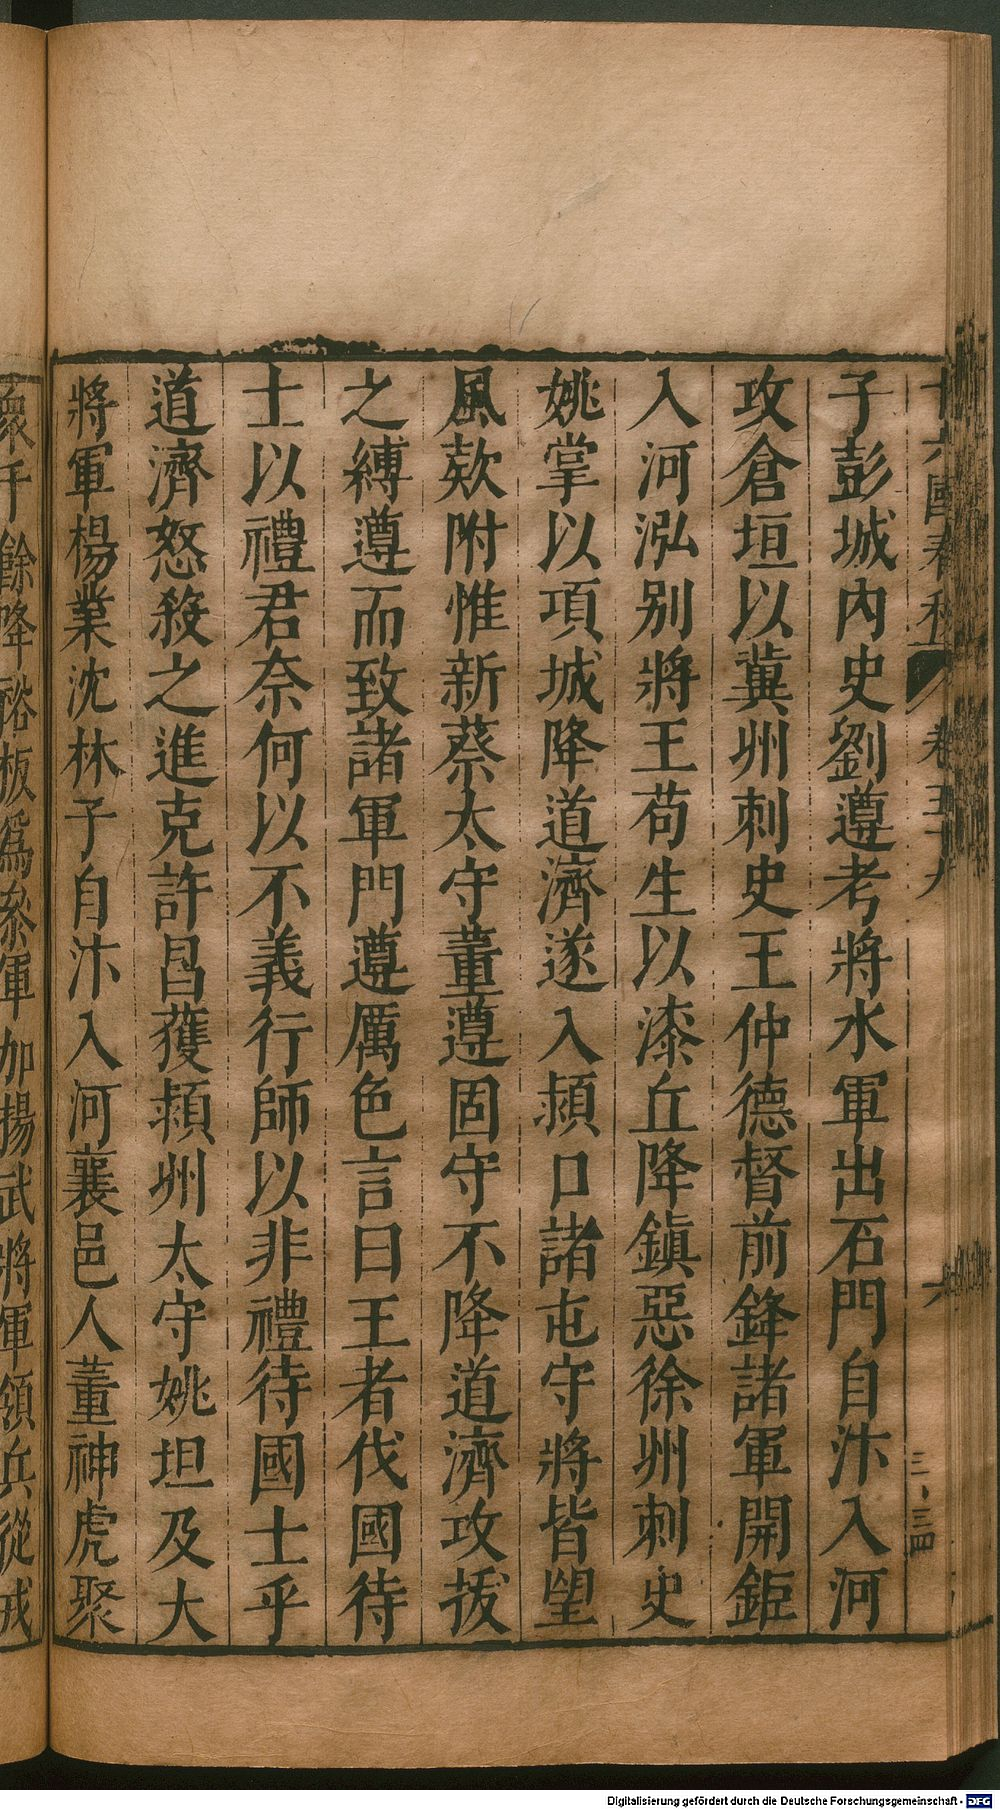 十六國春秋 卷五十八 六
三、三四
子彭城內史劉遵考將水軍出石門自汴入河
攻倉垣以冀州刺史王仲德督前鋒諸軍開鉅
入河泓别將王苟生以漆丘降鎮惡徐州刺史
姚掌以項城降道濟遂入熲口諸屯守將皆望
風欵附惟新蔡太守董遵固守不降道濟攻拔
之縛遵而致諸軍門遵厲色言曰王者伐國待
士以禮君奈何以不義行師以非禮待國士乎
道濟怒殺之進克許昌獲熲州太守姚坦及大
將軍楊業沈林子自汴入河襄邑人董神虎聚
衆千餘降裕板爲叅軍加揚武將軍領兵從戎
Digitalisierung gefördert durch die Deutsche Forschungsgemeinschaft - DFG